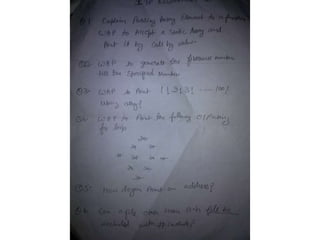 Q.1 Explain Passing Array Element to a function
WAP to Accept a Static Array and
Print it by Call by value.
Q.2 WAP to generate the number
till the Specified number
Q.3 WAP to Print 1! 2! 3! ..... 100!
Using array?
Q.4 WAP to Print the following O/P using
for loop
Q.5: How to print an address?
Q.6 Can a file other than a .h file be
included with #include?